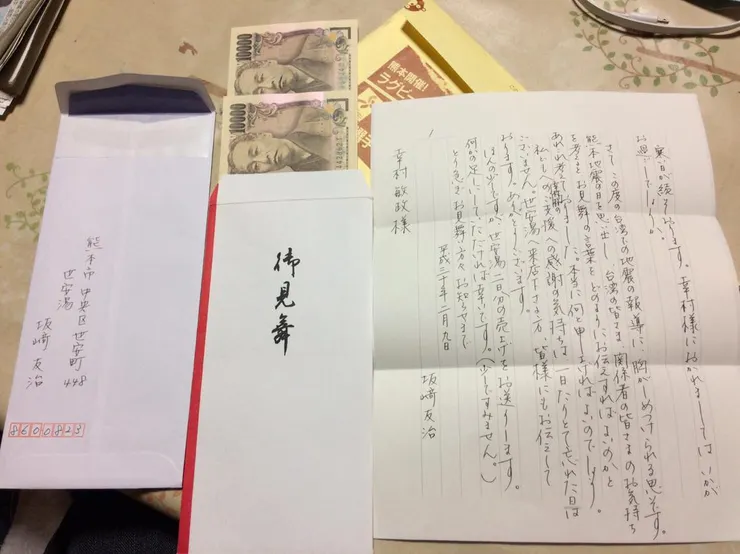 10000
10000
熊本開催!
ラグビー
御見舞
熊本市中央区世安町448
世安湯
坂崎友治
8600823
寒い日が続いております。幸村様におかれましてはいかが
お過しでしょうか。
さて、この度の台湾での地震の報道に、胸がしめつけられる思いです。
熊本地震の日を思い出し、台湾の皆さま、関係者の皆さまのお気持ち
を考えると、お見舞の言葉をどのようにお伝えすればよいのかと
あれこれ考えておりました。本当に何と申し上げればよいのでしょう。
私どもへのご支援への感謝の気持ちは一日たりとて忘れた日は
ございません。世安湯へ来店下さる方、皆様にもお伝えして
おります。ありがとうございます。
ほんの少しですが、世安湯二日分の売上をお送りします。
何かの足しにしていただければ幸いです。(少しですみません。)
とり急ぎお見舞い方々お知らせまで
平成三十年二月九日
坂崎友治
幸村敏政様